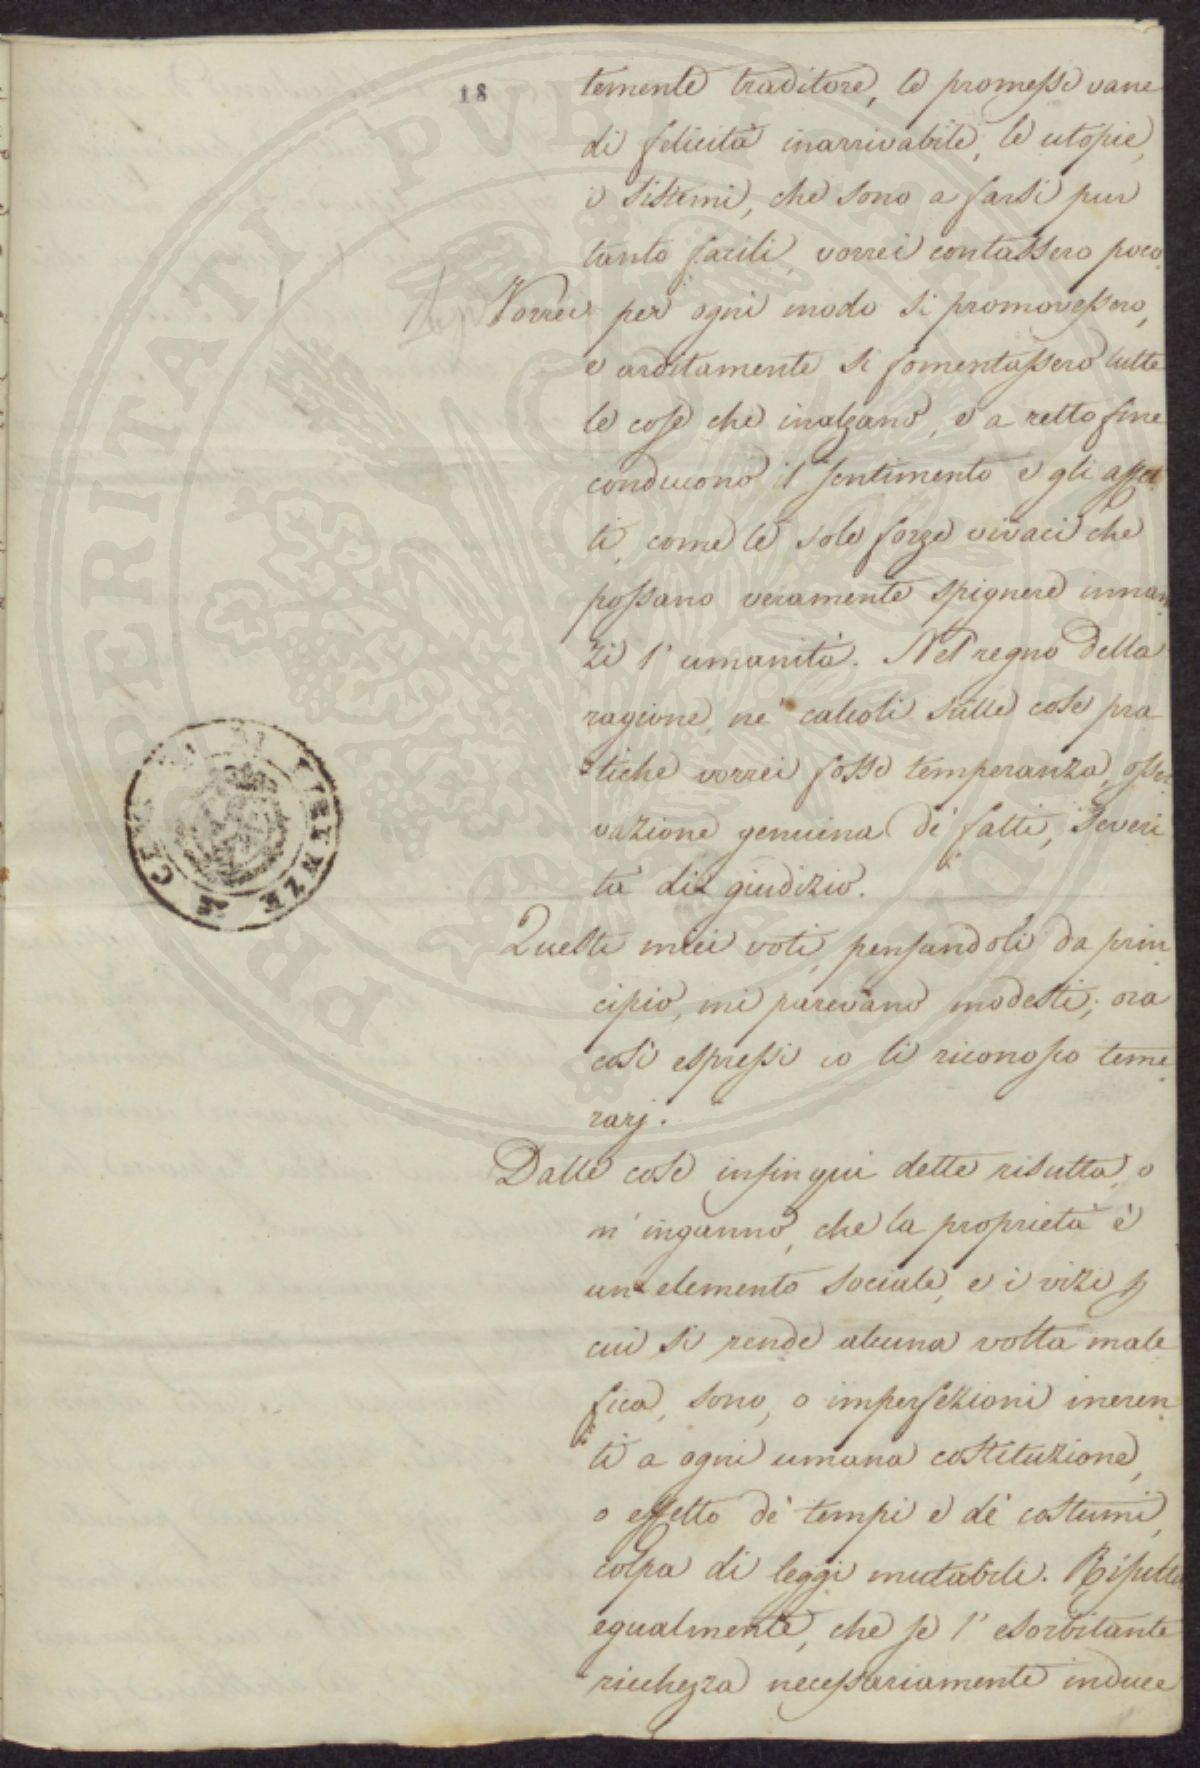 18
temente traditore, le promesse vane
di felicità inarrivabile, le utopie,
i sistemi, che sono a farsi pur
tanto facili, vorrei contassero poco.
Vorrei per ogni modo si promovessero,
e arditamente si fomentassero tutte
le cose che inalzano, e a retto fine
conducono il sentimento e gli affet
ti, come le sole forze vivaci che
possano veramente spignere innan
zi l' umanità. Nel regno della
ragione, ne' calcoli sulle cose pra
tiche vorrei fosse temperanza, osser
vazione genuina de' fatti, severi
tà di giudizio.
Questi miei voti, pensandoli da prin
cipio, mi parevano modesti; ora
così espressi io li riconosco teme
rarj.
Dalle cose infin qui dette risulta, o
m' inganno, che la proprietà è
un elemento sociale, e i vizi p
cui si rende alcuna volta male
fica, sono, o imperfezioni ineren
ti a ogni umana costituzione,
o effetto de' tempi e de' costumi,
colpa di leggi mutabili. Risulta
egualmente, che se l' esorbitante
ricchezza necessariamente induce
PROSPERITATI PUBLICAE
FIRENZE